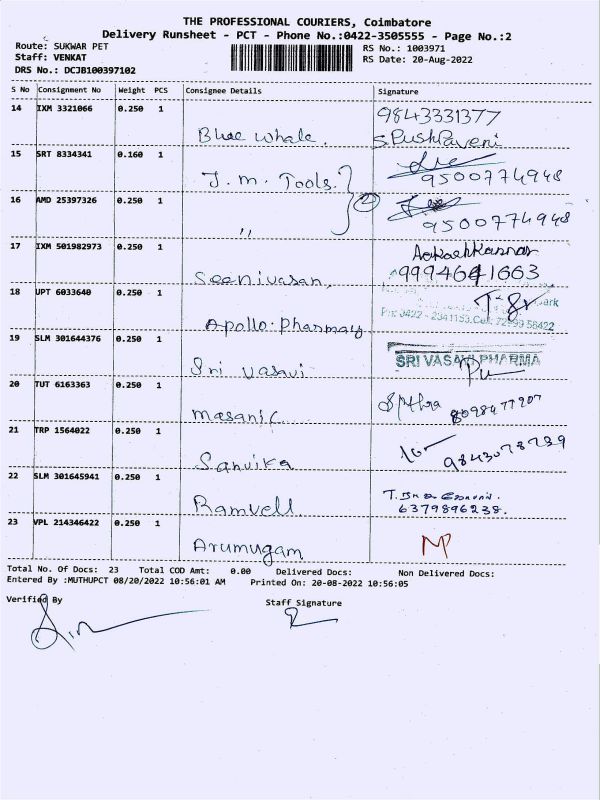 THE PROFESSIONAL COURIERS, Coimbatore
Delivery Runsheet - PCT - Phone No.:0422-3505555 - Page No.:2
Route: SUKWAR PET
RS No.: 1003971
Staff: VENKAT
RS Date: 20-Aug-2022
DRS No.: DCJB100397102
S No Consignment No Weight PCS Consignee Details Signature
14 IXM 3321066 0.250 1
9843331377
Blue whale. S.PushPaveni
15 SRT 8334341 0.160 1
J.M. Tools. 9500774948
16 AMD 25397326 0.250 1 2
" 9500774948
17 IXM 501982973 0.250 1
Seenivasan. 9994641663
18 UPT 6033640 0.250 1
Apollo Pharmacy Ph: 0422 - 2341153, Cell: 72999 56422
19 SLM 301644376 0.250 1
Sri Vasavi SRI VASAVI PHARMA
20 TUT 6163363 0.250 1
Masanic 8098477907
21 TRP 1564022 0.250 1
Sanvika 9843078739
22 SLM 301645941 0.250 1
Ramvell 6379896238.
23 VPL 214346422 0.250 1
Arumugam MP
Total No. Of Docs: 23 Total COD Amt: 0.00 Delivered Docs: Non Delivered Docs:
Entered By :MUTHUPCT 08/20/2022 10:56:01 AM Printed On: 20-08-2022 10:56:05
Verified By
Staff Signature